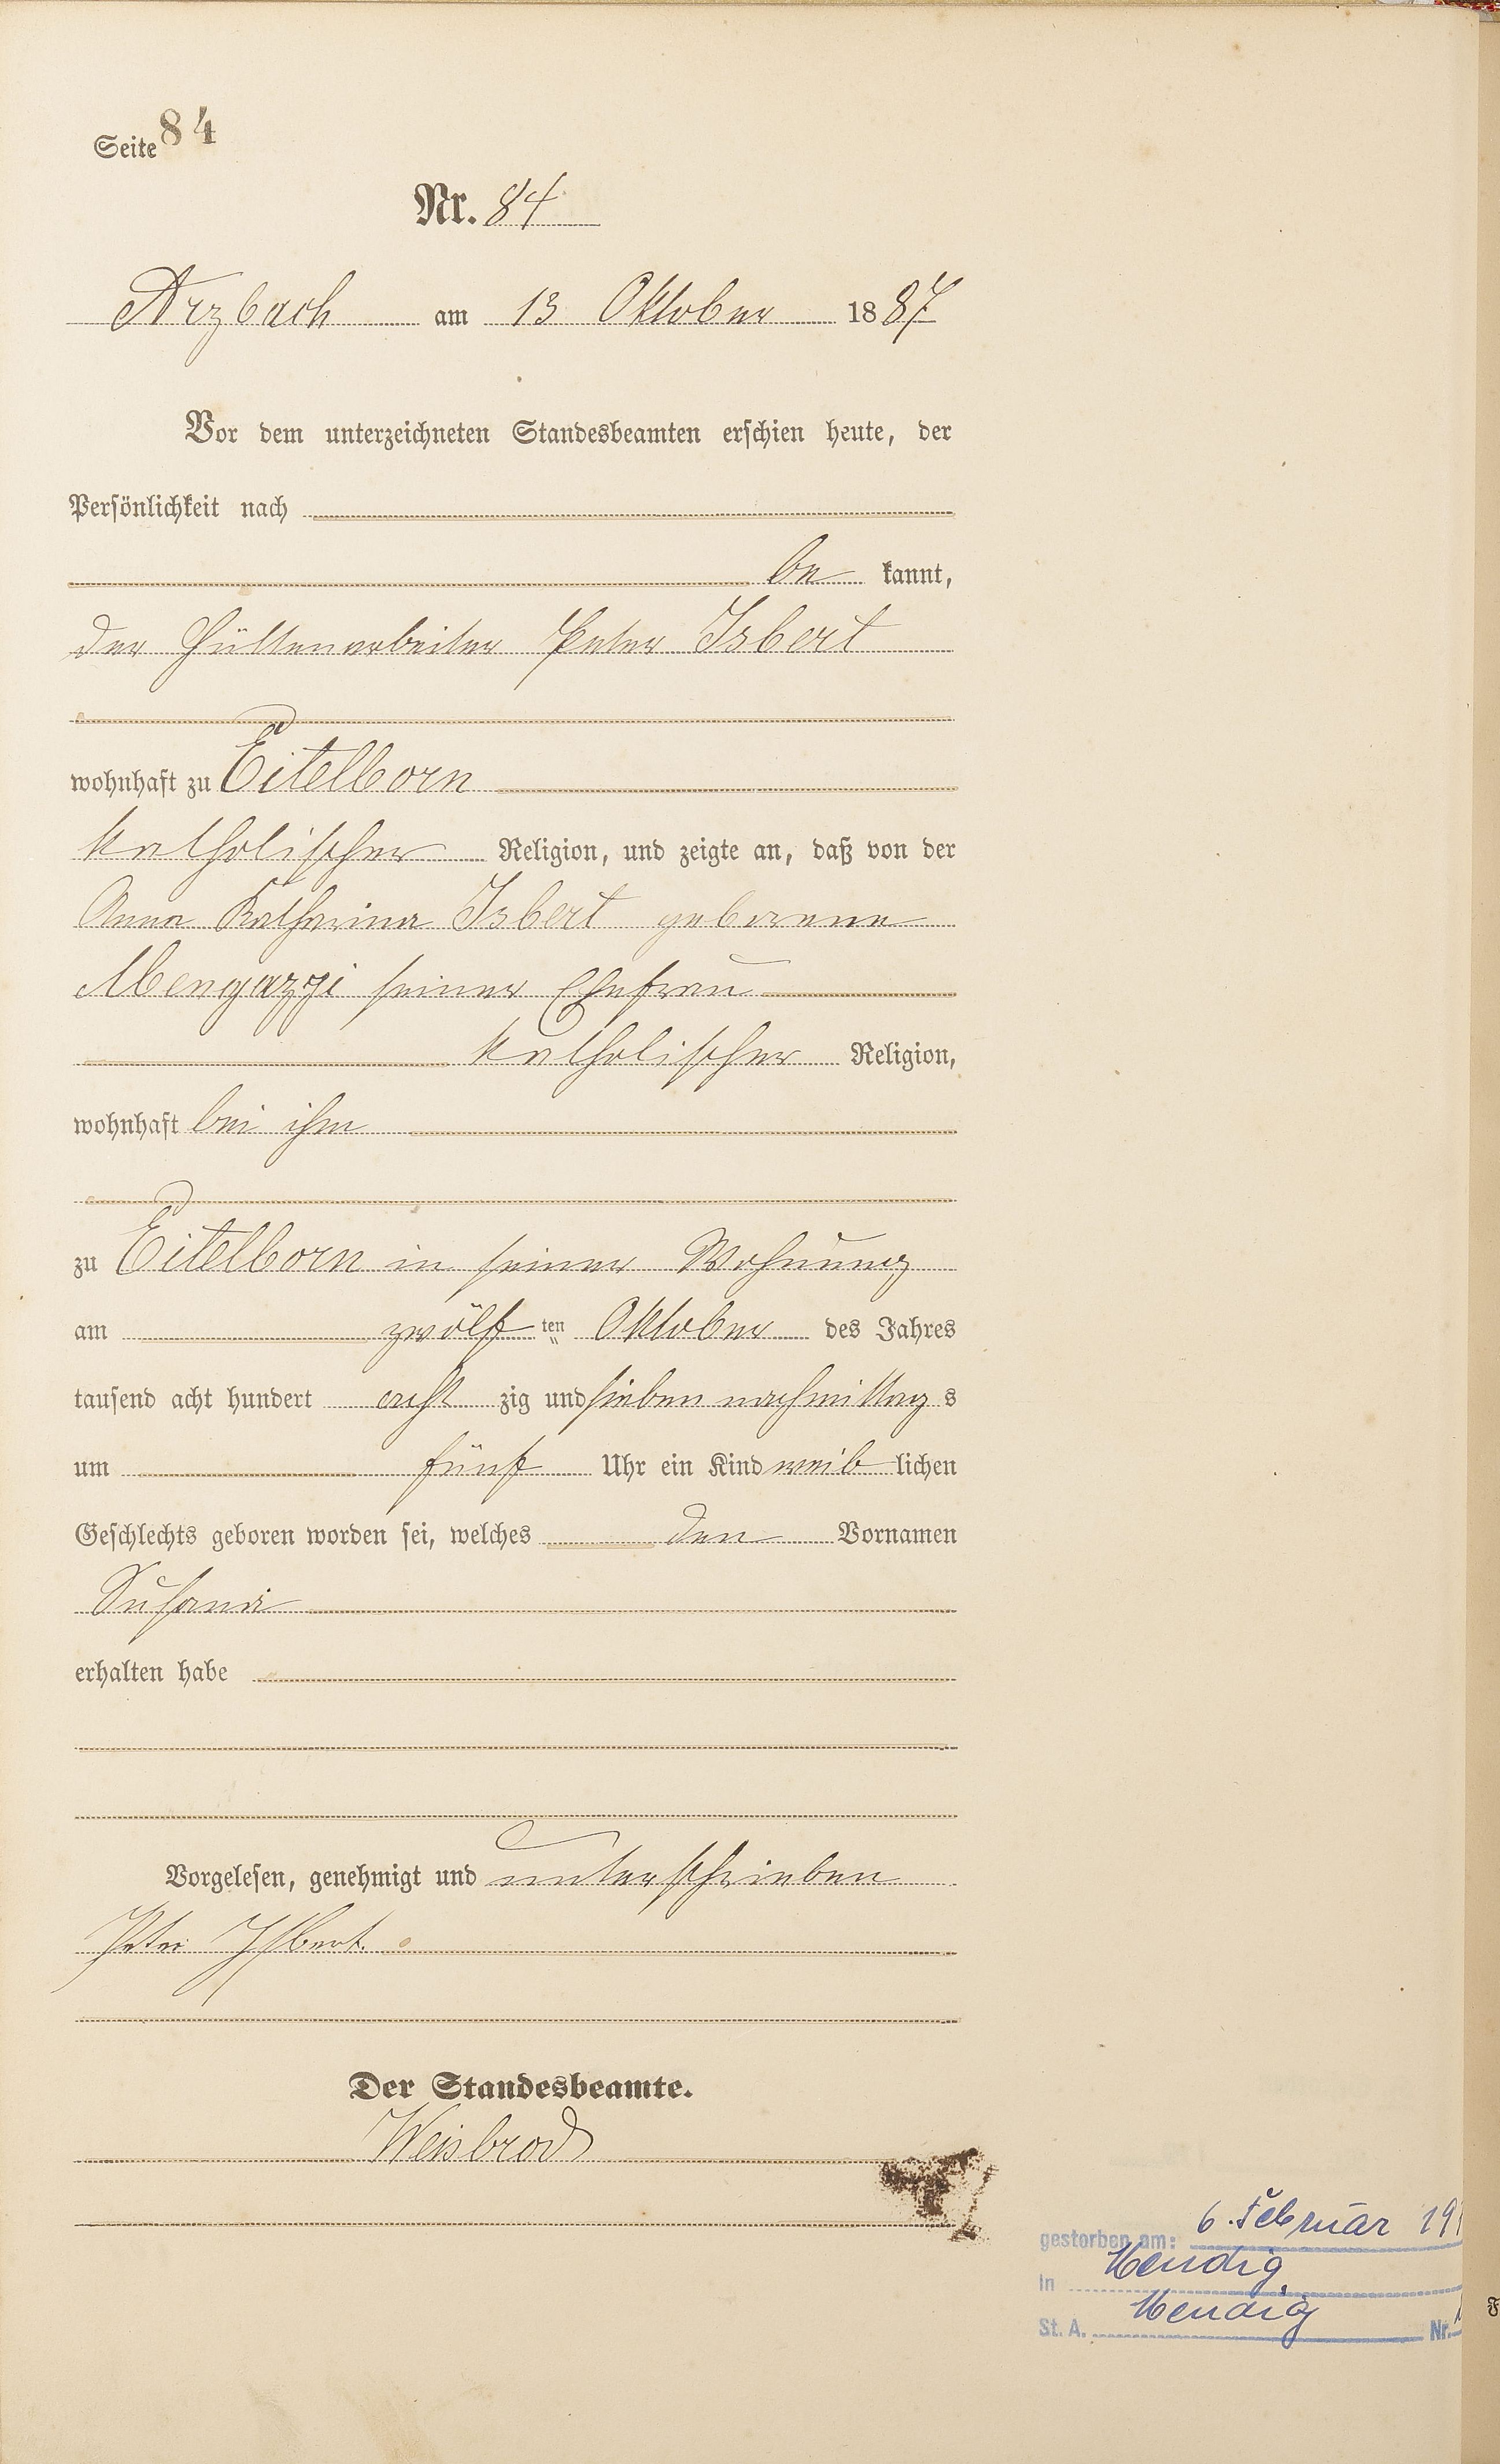 Seite 84
Nr. 84
Arzbach am 13 Oktober 1887
Vor dem unterzeichneten Standesbeamten erschien heute, der
Persönlichkeit nach
be kannt,
der Hüttenarbeiter Peter Isbert
wohnhaft zu Eitelborn
katholischer Religion, und zeigte an, daß von der
Anna Katharina Isbert geborene
Mengazzi seiner Ehefrau
katholischer Religion,
wohnhaft bei ihm
zu Eitelborn in seiner Wohnung
am zwölf ten Oktober des Jahres
tausend acht hundert acht zig und sieben nachmittag s
um fünf Uhr ein Kind weib lichen
Geschlechts geboren worden sei, welches den Vornamen
Susana
erhalten habe
Vorgelesen, genehmigt und unterschrieben
Peter Isbert.
Der Standesbeamte.
Weisbrod
gestorben am: 6. Februar
in Mendig
St. A. Mendig Nr.